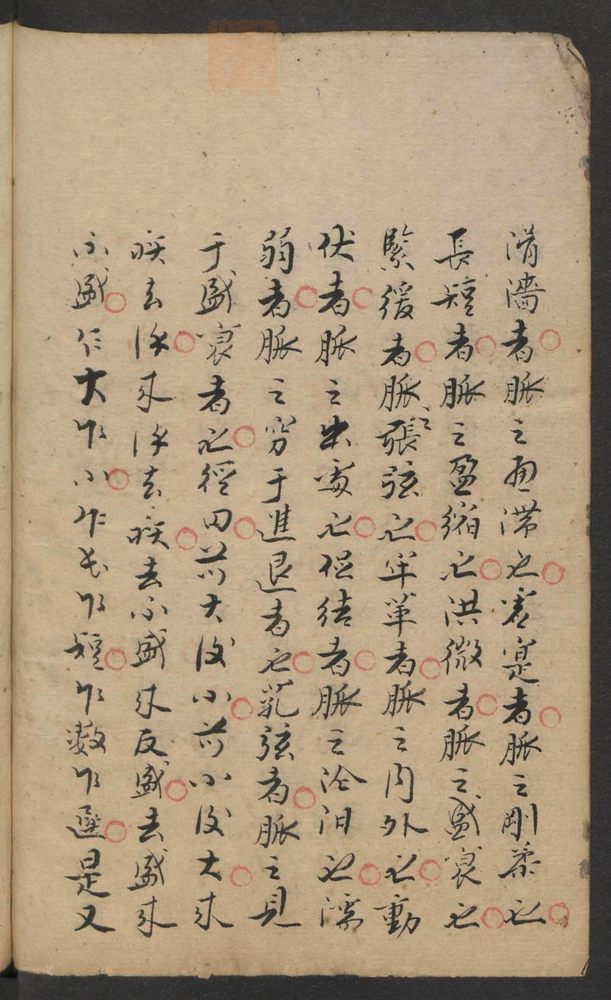 滑濇者脈之通滞也虚寔者脈之剛柔也
長短者脈之盈縮也洪微者脈之盛衰也
緊緩者脈之張弦也牢革者脈之内外也動
伏者脈之出處也促結者脈之也濡
弱者脈之窮于進退者也芤弦者脈之見
于盛衰者也經曰前大後小前小後大来
疾去徐来徐去疾去不盛来反盛去盛来
不盛乍大乍小乍長乍短乍數乍遲是又